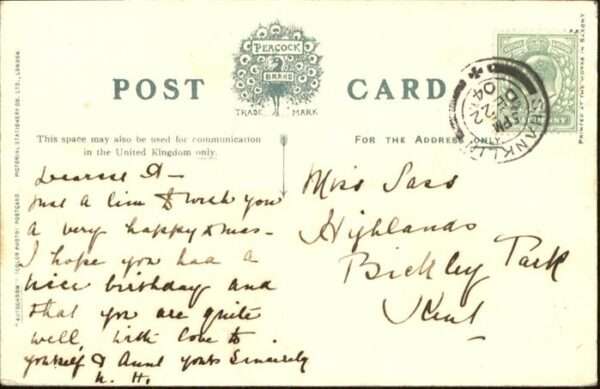 POST CARD
PEACOCK
BRAND
TRADE MARK
This space may also be used for communication
in the United Kingdom only.
FOR THE ADDRESS ONLY.
"AUTOCHROM" (COLOUR PHOTO) POSTCARD
PICTORIAL STATIONERY CO. LTD., LONDON
PRINTED AT THE WORKS IN SAXONY
SHANKLIN
5 PM
DE 22
04
HALFPENNY
Dearest A—
Just a line to wish you
a very happy Xmas—
I hope you had a
nice birthday and
that you are quite
well, with love to
yourself & Aunt yours Sincerely
N. H.
Miss Sass
Highlands
Bickley Park
Kent